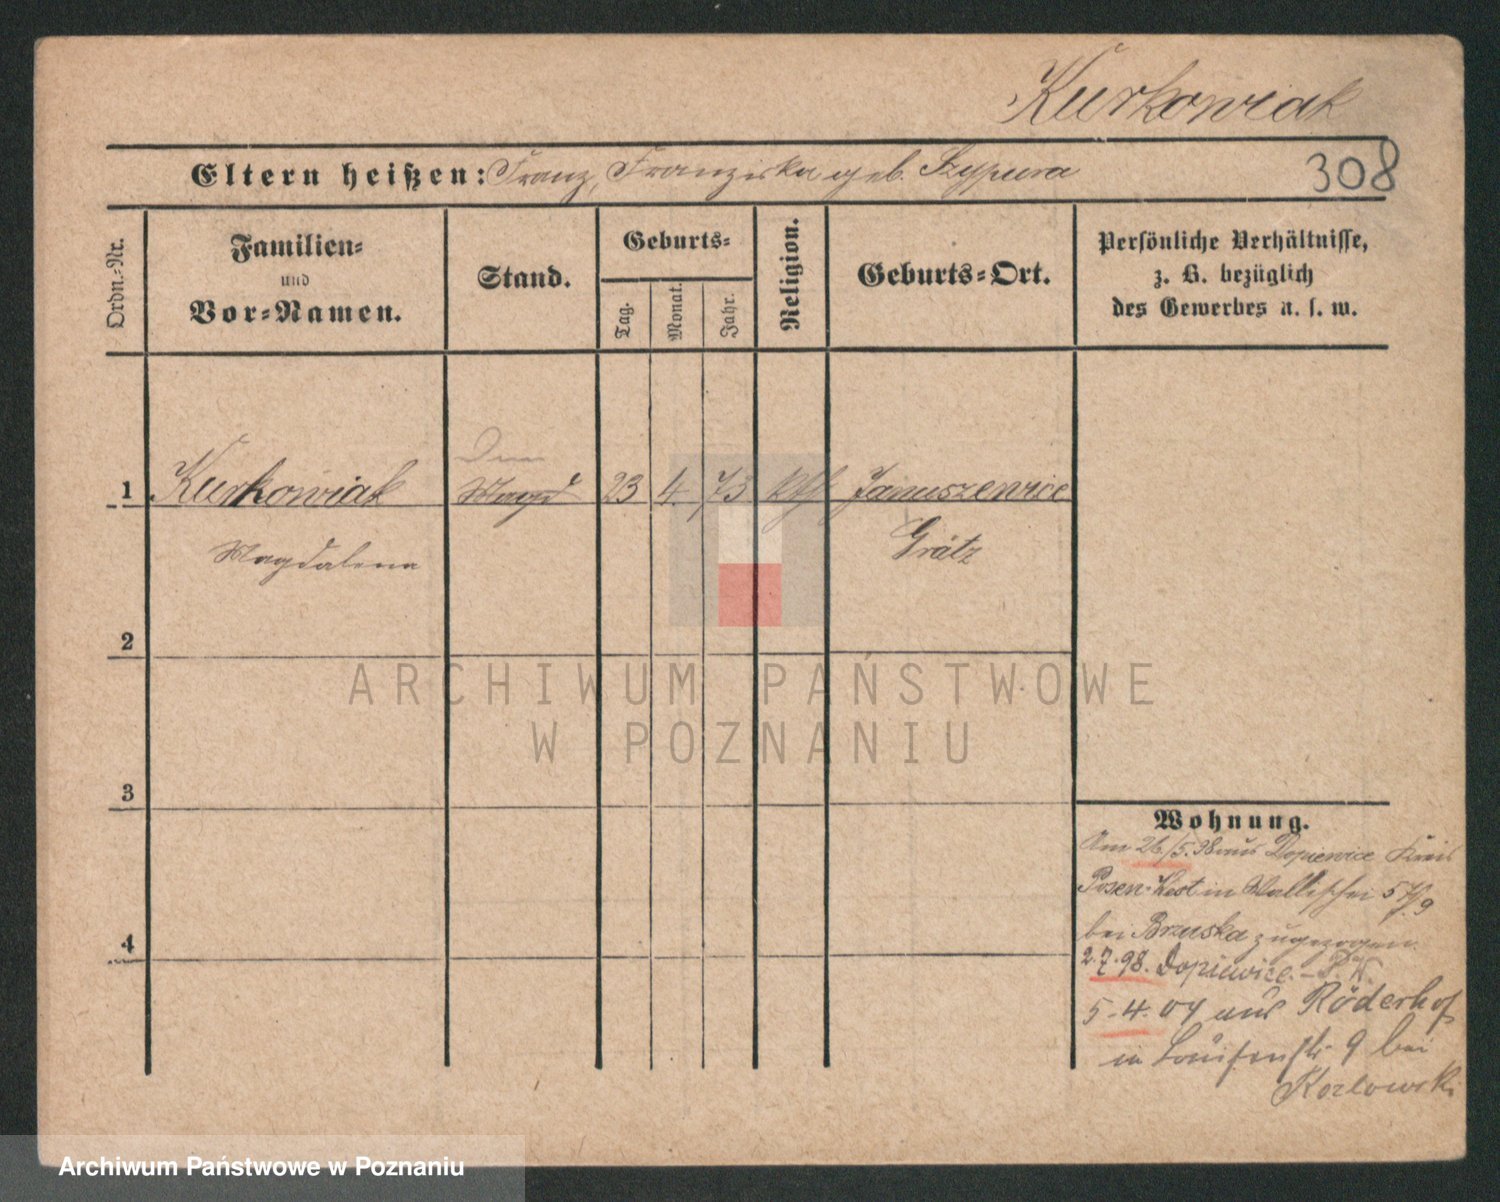 Kurkowiak
Eltern heißen: Franz, Franziska geb. Szypura
308
Ordn.-Nr.
Familien-
und
Vor-Namen.
Stand.
Geburts-
Tag.
Monat.
Jahr.
Religion.
Geburts-Ort.
Persönliche Verhältnisse,
z. B. bezüglich
des Gewerbes u. s. w.
1 Kurkowiak Magd 23 4. 73 kth Januszewice
Magdalena Grätz
2
3
4
Wohnung.
Am 26./5. 98 aus Dopiewice Kreis
Posen West in Wallischei
bei Brzuska zugezogen.
2.7.98. Dopiewice. - P. W.
5-4.04 aus Röderhof
in Louisenstr. 9 bei
Kozlowski
ARCHIWUM PAŃSTWOWE
W POZNANIU
Archiwum Państwowe w Poznaniu